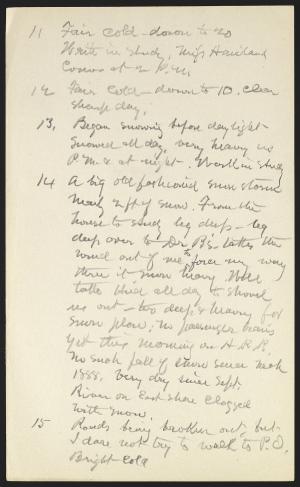 11 Fair Cold - down to 20
Write in study, Miss Haviland
Comes at 2 P.M.
12 Fair Cold - down to 10. Clear
sharp day.
13, Began snowing before daylight -
snowed all day, very heavy in
P.M. & at night. Work in study
14 A big old fashioned snow storm
nearly 2 ft of snow. From the
house to study leg deep - leg
deep over to Dr B's - takes the
wind out of me to force my way
through it snow heavy. Hud
talks hird all day to shovel
us out - too deep & heavy for
snow plow; no passenger trains
yet this morning on H.R.R.
No such fall of snow since March
1888. Very dry since Sept.
River on East shore clogged
with snow.
15 Roads being broken out, but
I dare not try to walk to P.O.
Bright - Cold